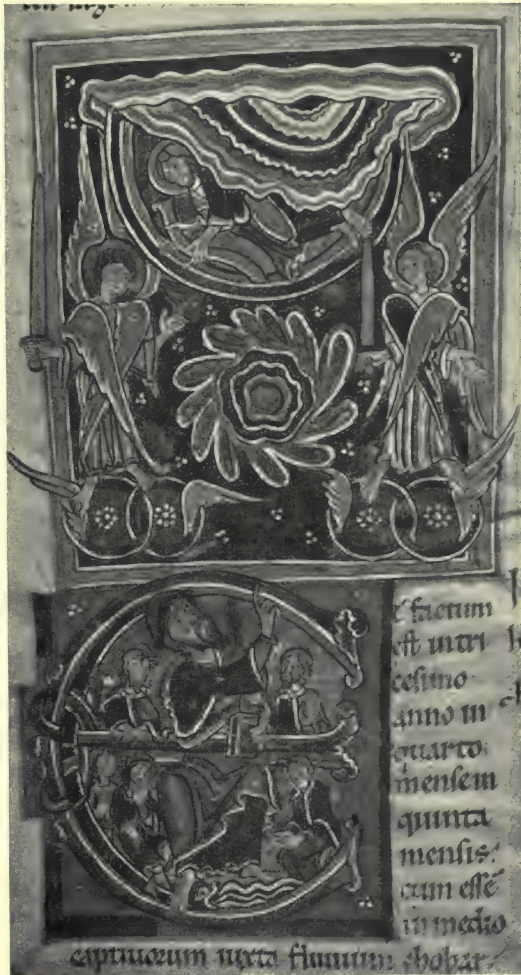 E factum
est in tri
cesimo
anno in
quarto.
mensem
quinta
mensis:
cum esse
in medio
captiuorum iuxta fluuium chobar.